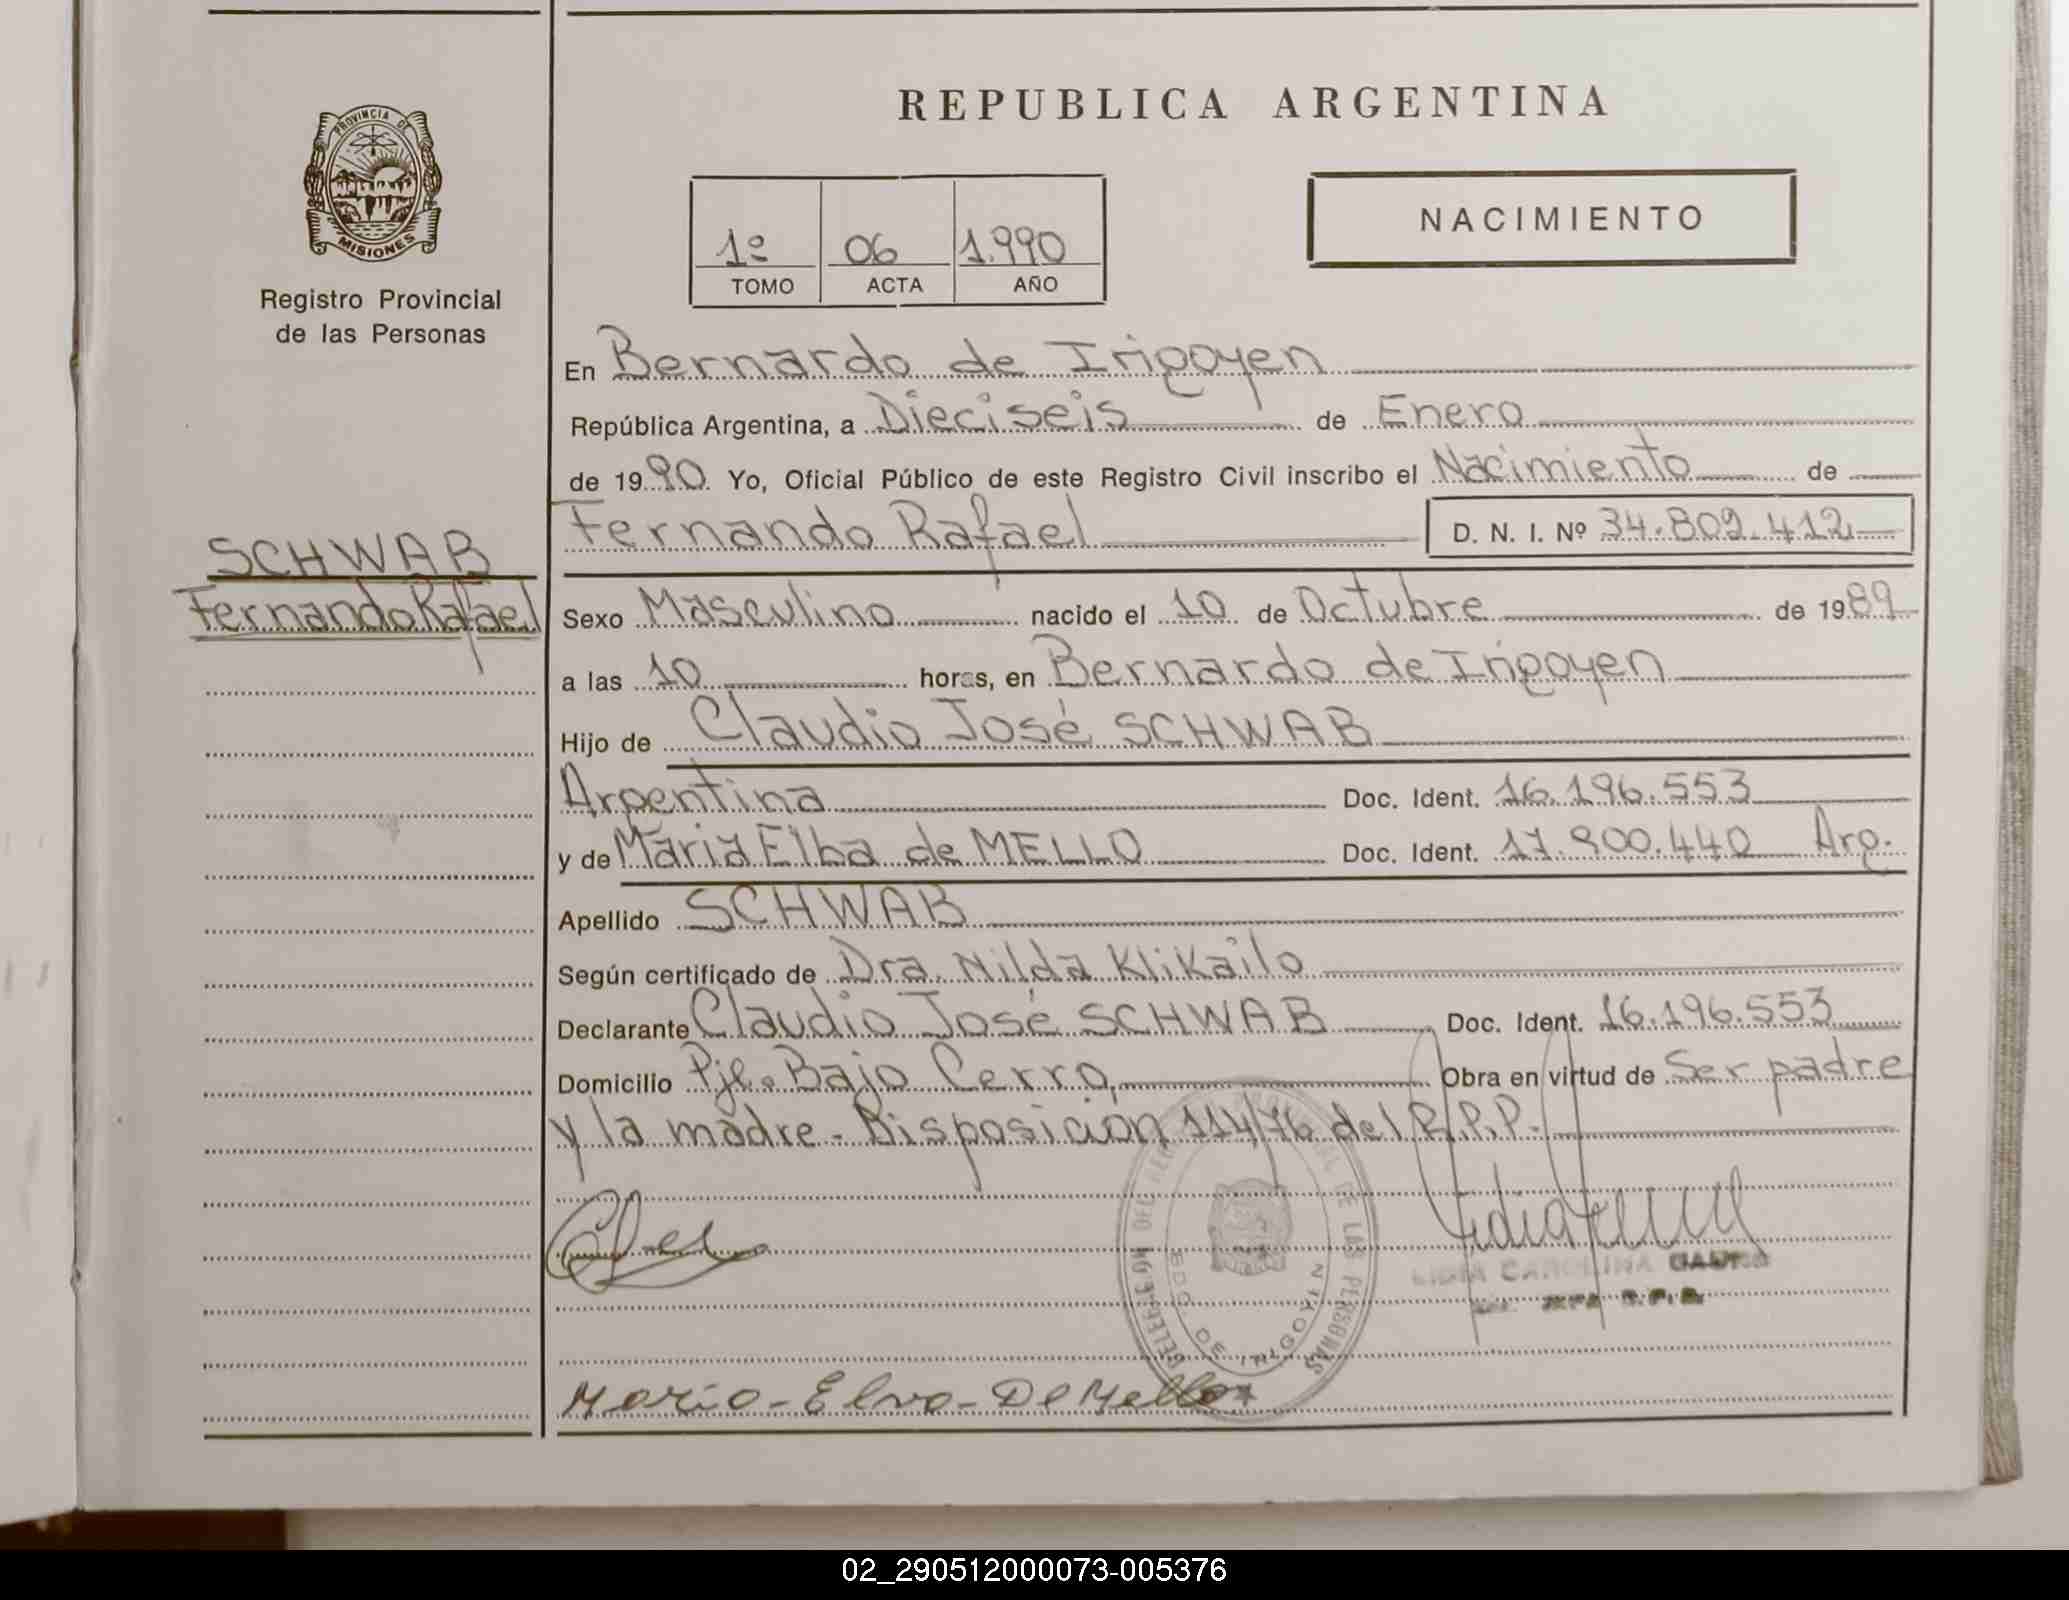 REPUBLICA ARGENTINA
PROVINCIA DE
MISIONES
Registro Provincial
de las Personas
NACIMIENTO
1º 06 1.990
TOMO ACTA AÑO
En Bernardo de Irigoyen
República Argentina, a Dieciseis de Enero
de 1990 Yo, Oficial Público de este Registro Civil inscribo el Nacimiento de
Fernando Rafael D. N. I. Nº 34.802.412
SCHWAB
Fernando Rafael
Sexo Masculino nacido el 10 de Octubre de 1989
a las 10 horas, en Bernardo de Irigoyen
Hijo de Claudio José SCHWAB
Argentina Doc. Ident. 16.196.553
y de Maria Elba de MELLO Doc. Ident. 17.900.440 Arg.
Apellido SCHWAB
Según certificado de Dra. Nilda Klikailo
Declarante Claudio José SCHWAB Doc. Ident. 16.196.553
Domicilio Pje. Bajo Cerro, Obra en virtud de Ser padre
y la madre. Disposición 114/76 del R.P.P.
DE LAS PERSONAS
BDO. DE IRIGOYEN
LIDIA CAROLINA
Maria - Elva - De Mello
02_290512000073-005376